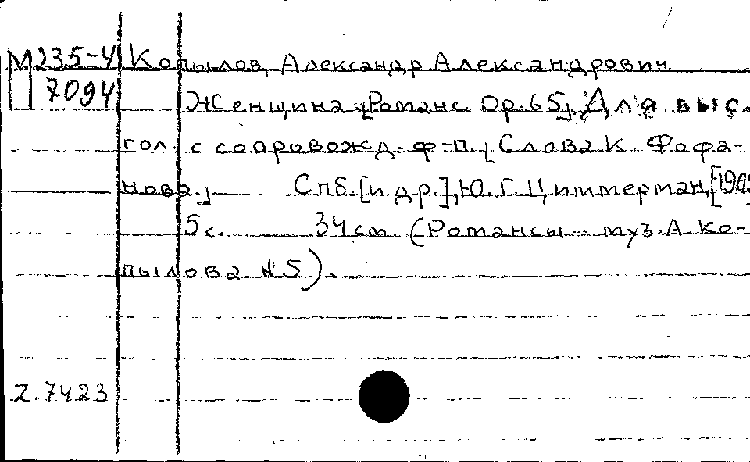 М235-4 Копылов, Александр Александрович
7094 Женщина. [Романс. Op. 65]. Для выс.
гол. с сопровожд. ф-п. [Слова К. Фофа-
нова.] Спб. [и др.], Ю. Г. Циммерман,
5 с. 34 см (Романсы муз. А. Ко-
пылова №5).
Z.7423